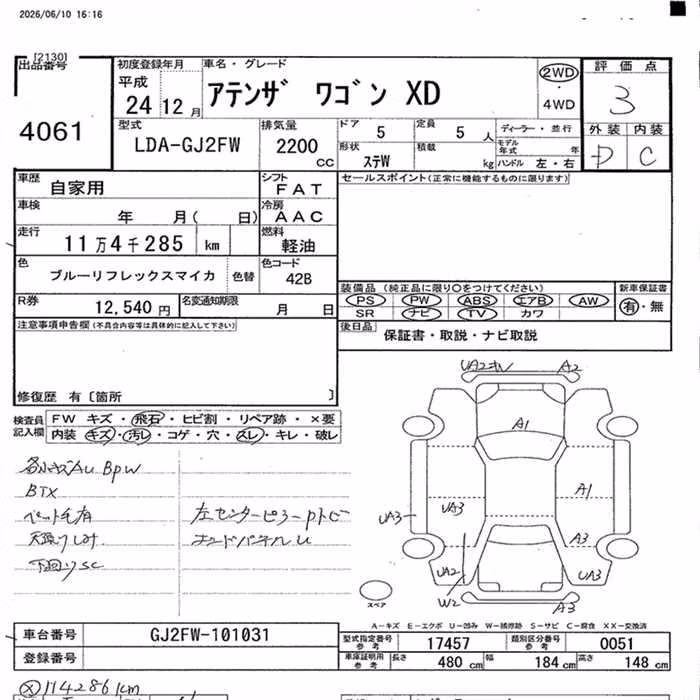 2026/06/10 16:16
[2130]
出品番号
4061
初度登録年月
平成
24 12 月
車名・グレード
アテンザ ワゴン XD
2WD
4WD
評価点
3
外装 内装
D C
型式
LDA-GJ2FW
排気量
2200 CC
ドア 5
定員 5 人
形状 ステW
積載 kg
ディーラー・並行
モデル年式 年
ハンドル 左・右
車歴
自家用
シフト
FAT
車検
年 月( 日)
冷房
AAC
走行
11万4千285 km
燃料
軽油
色
ブルーリフレックスマイカ
色替
色コード
42B
R券
12,540 円
名変通知期限
月 日
セールスポイント(正常に機能するものに限ります)
装備品(純正品に限り〇をつけてください)
PS PW ABS エアB AW
SR ナビ TV カワ
新車保証書
有・無
後日品
保証書・取説・ナビ取説
注意事項申告欄(不具合内容等は具体的に記入して下さい)
修復歴 有〔箇所 〕
検査員記入欄
FW キズ・飛石・ヒビ割・リペア跡・×要
内装 キズ・汚レ・コゲ・穴・スレ・キレ・破レ
各小キズAU BPW
BTX
ペット毛有
天張りしみ
下回りSC
左センターピラーPトビ
エンドパネルU
A2
A1
A1
UA3
UA3
A3
UA2
UA3
W2
A3
スペア
A-キズ E-エクボ U-凹み W-補修跡 S-サビ C-腐食 XX-交換済
車台番号
GJ2FW-101031
登録番号
型式指定番号参考
17457
類別区分番号参考
0051
車庫証明用参考
長さ 480 cm
幅 184 cm
高さ 148 cm
Ⓧ114286km